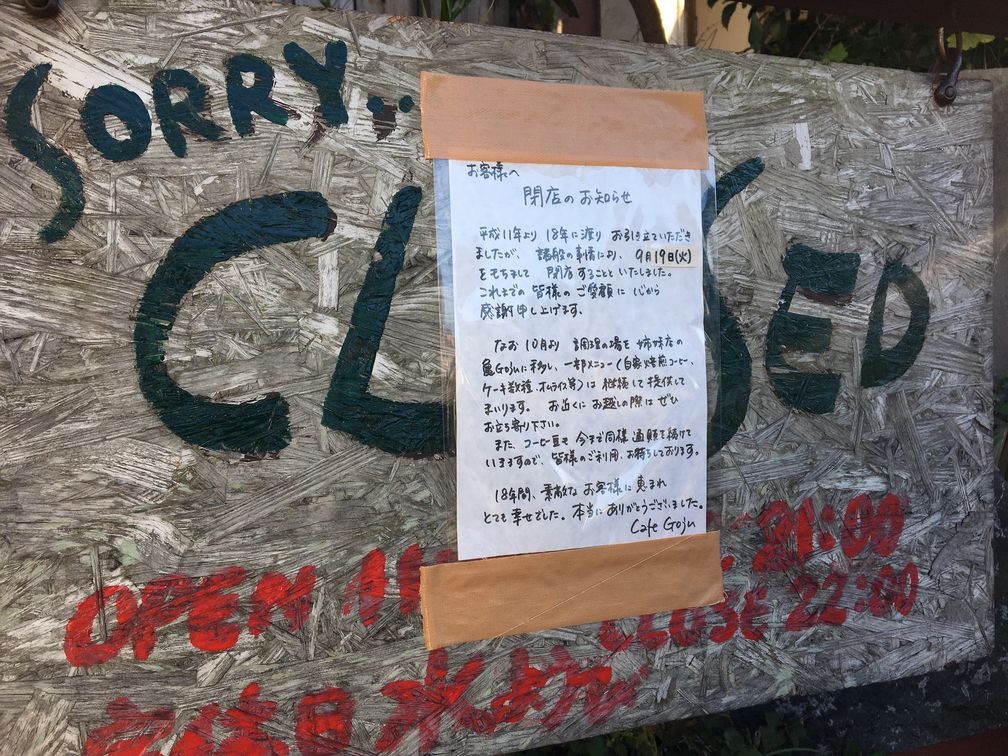 SORRY..
CLOSED
お客様へ
閉店のお知らせ
平成11年より 18年に渡り お引き立ていただき
ましたが、諸般の事情により、9月19日(火)
をもちまして 閉店することといたしました。
これまでの 皆様の ご愛顧に 心から
感謝申し上げます。
なお 10月より 調理の場を 姉妹店の
Gojuに移し、一部メニュー(自家焙煎コーヒー、
ケーキ数種、オムライス等)は 継続して 提供して
まいります。 お近くに お越しの際は ぜひ
お立ち寄り下さい。
また、コーヒー豆も 今まで同様 通販で続けて
いきますので、皆様のご利用、お待ちしております。
18年間、素敵な お客様に 恵まれ
とても 幸せでした。本当に ありがとうございました。
Cafe Goju
OPEN 11 21:00
CLOSE 22:00
定休日 水ようび